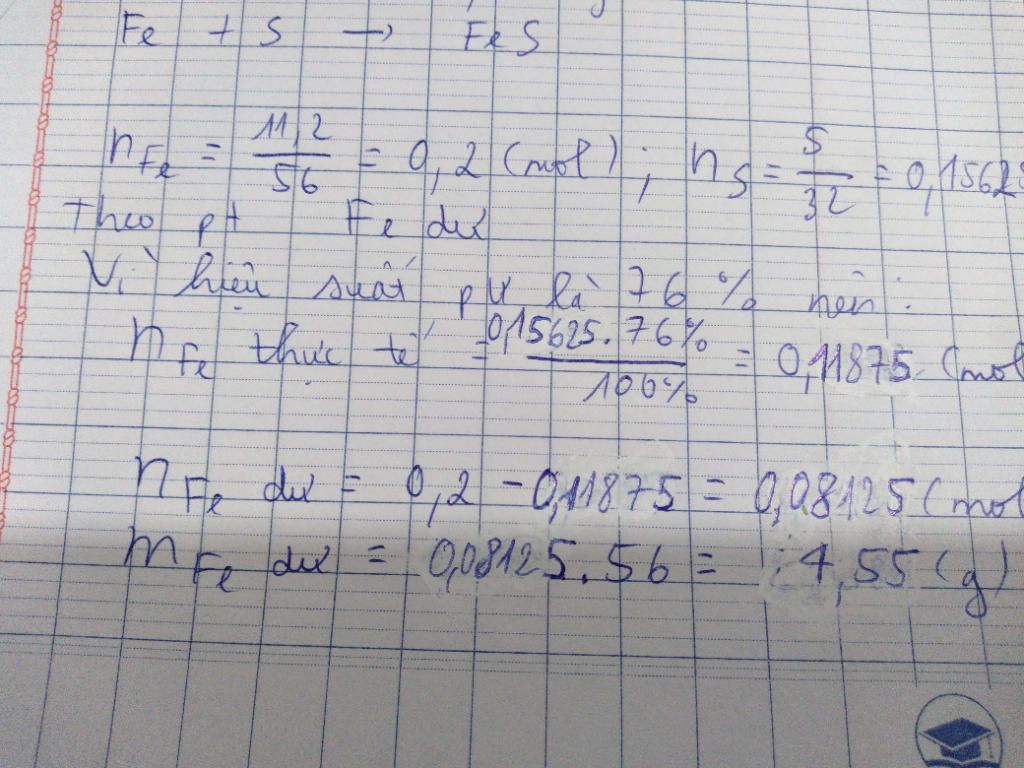 Fe + S → FeS
n Fe = 11,2 / 56 = 0,2 (mol) ; n S = 5 / 32 = 0,15625
Theo pt Fe dư
Vì hiệu suất pư là 76 % nên :
n Fe thực tế = 0,15625 . 76% / 100% = 0,11875 (mol
n Fe dư = 0,2 - 0,11875 = 0,08125 (mol
m Fe dư = 0,08125 . 56 = 4,55 (g)